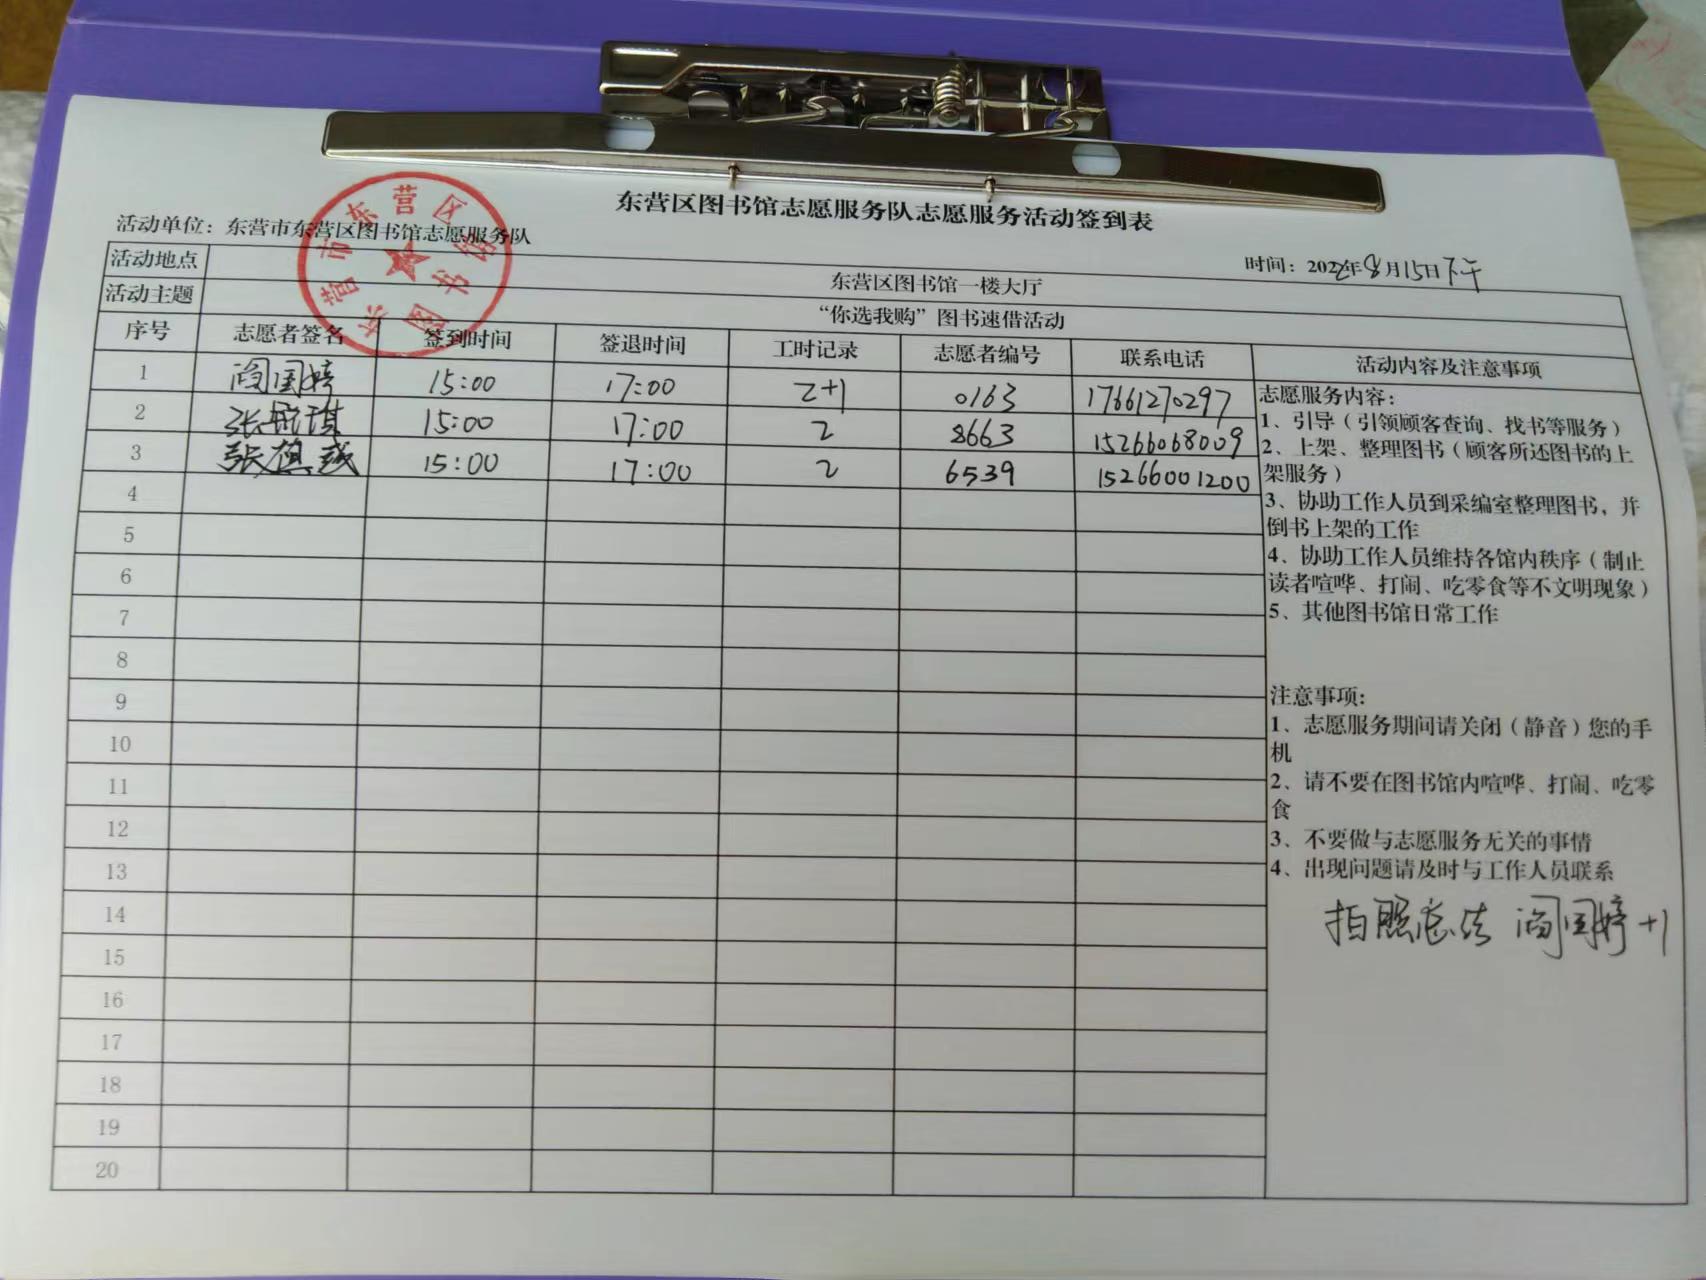 东营区图书馆志愿服务队志愿服务活动签到表
活动单位：东营市东营区图书馆志愿服务队
时间：2022年8月15日下午
东营市东营区图书馆
活动地点 东营区图书馆一楼大厅
活动主题 “你选我购”图书速借活动
序号 志愿者签名 签到时间 签退时间 工时记录 志愿者编号 联系电话 活动内容及注意事项
1 闫国婷 15:00 17:00 2+1 0163 17661270297
2 张 琪 15:00 17:00 2 8663 15266068009
3 张 15:00 17:00 2 6539 15266001200
4
5
6
7
8
9
10
11
12
13
14
15
16
17
18
19
20
志愿服务内容：
1、引导（引领顾客查询、找书等服务）
2、上架、整理图书（顾客所还图书的上
架服务）
3、协助工作人员到采编室整理图书，并
倒书上架的工作
4、协助工作人员维持各馆内秩序（制止
读者喧哗、打闹、吃零食等不文明现象）
5、其他图书馆日常工作
注意事项：
1、志愿服务期间请关闭（静音）您的手
机
2、请不要在图书馆内喧哗、打闹、吃零
食
3、不要做与志愿服务无关的事情
4、出现问题请及时与工作人员联系
拍照总结 闫国婷+1